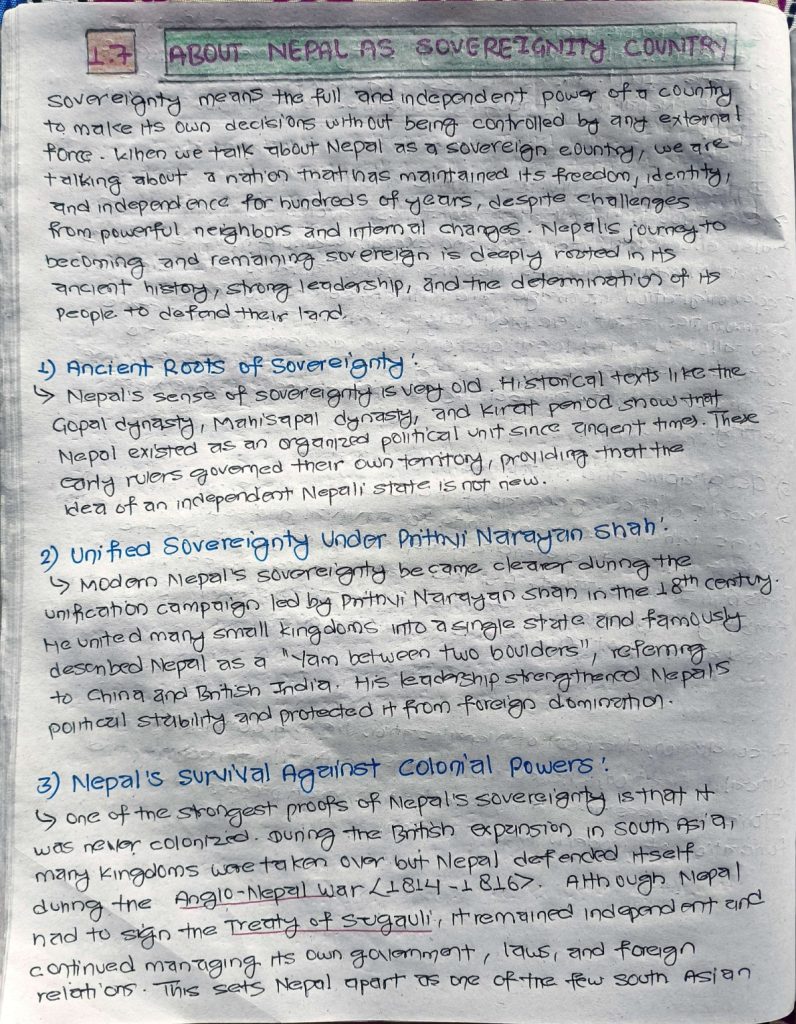 1.7 ABOUT NEPAL AS SOVEREIGNITY COUNTRY
Sovereignty means the full and independent power of a country
to make its own decisions without being controlled by any external
force. When we talk about Nepal as a sovereign country, we are
talking about a nation that has maintained its freedom, identity,
and independence for hundreds of years, despite challenges
from powerful neighbors and internal changes. Nepal's journey to
becoming and remaining sovereign is deeply rooted in its
ancient history, strong leadership, and the determination of its
people to defend their land.
1) Ancient Roots of Sovereignty:
↳ Nepal's sense of sovereignty is very old. Historical texts like the
Gopal dynasty, Mahisapal dynasty, and Kirat period show that
Nepal existed as an organized political unit since ancient times. These
early rulers governed their own territory, providing that the
idea of an independent Nepali state is not new.
2) Unified Sovereignty Under Prithvi Narayan Shah:
↳ Modern Nepal's sovereignty became clearer during the
unification campaign led by Prithvi Narayan Shah in the 18th century.
He united many small kingdoms into a single state and famously
described Nepal as a "Yam between two boulders", referring
to China and British India. His leadership strengthened Nepal's
political stability and protected it from foreign domination.
3) Nepal's Survival Against Colonial Powers:
↳ One of the strongest proofs of Nepal's sovereignty is that it
was never colonized. During the British expansion in South Asia,
many kingdoms were taken over but Nepal defended itself
during the Anglo-Nepal War <1814-1816>. Although Nepal
had to sign the Treaty of Sugauli, it remained independent and
continued managing its own government, laws, and foreign
relations. This sets Nepal apart as one of the few South Asian